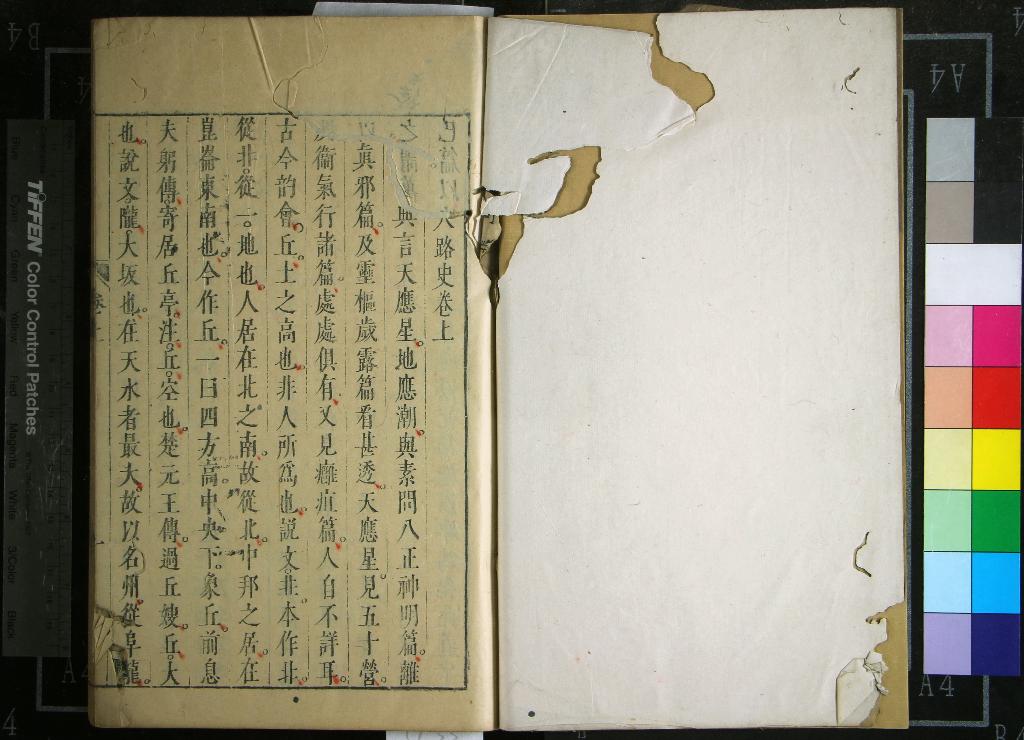 穴路史卷上
與言天應星地應潮與素問八正神明篇離
真邪篇及靈樞歲露篇看甚透天應星見五十營
衞氣行諸篇處處俱有又見癰疽篇人自不詳耳
古今韵會丘土之高也非人所爲也說文丠本作北
從丠從一地也人居在北之南故從北中邦之居在
崑崙東南也今作丘一曰四方高中央下象丘前息
夫躬傳寄居丘亭注丘空也楚元王傳過丘嫂丘大
也說文隴大坂也在天水者最大故以名州從阜龍
卷上
TIFFEN Color Control Patches
Blue Cyan Green Yellow Red Magenta White 3/Color Black
A4
A4
A4
B4